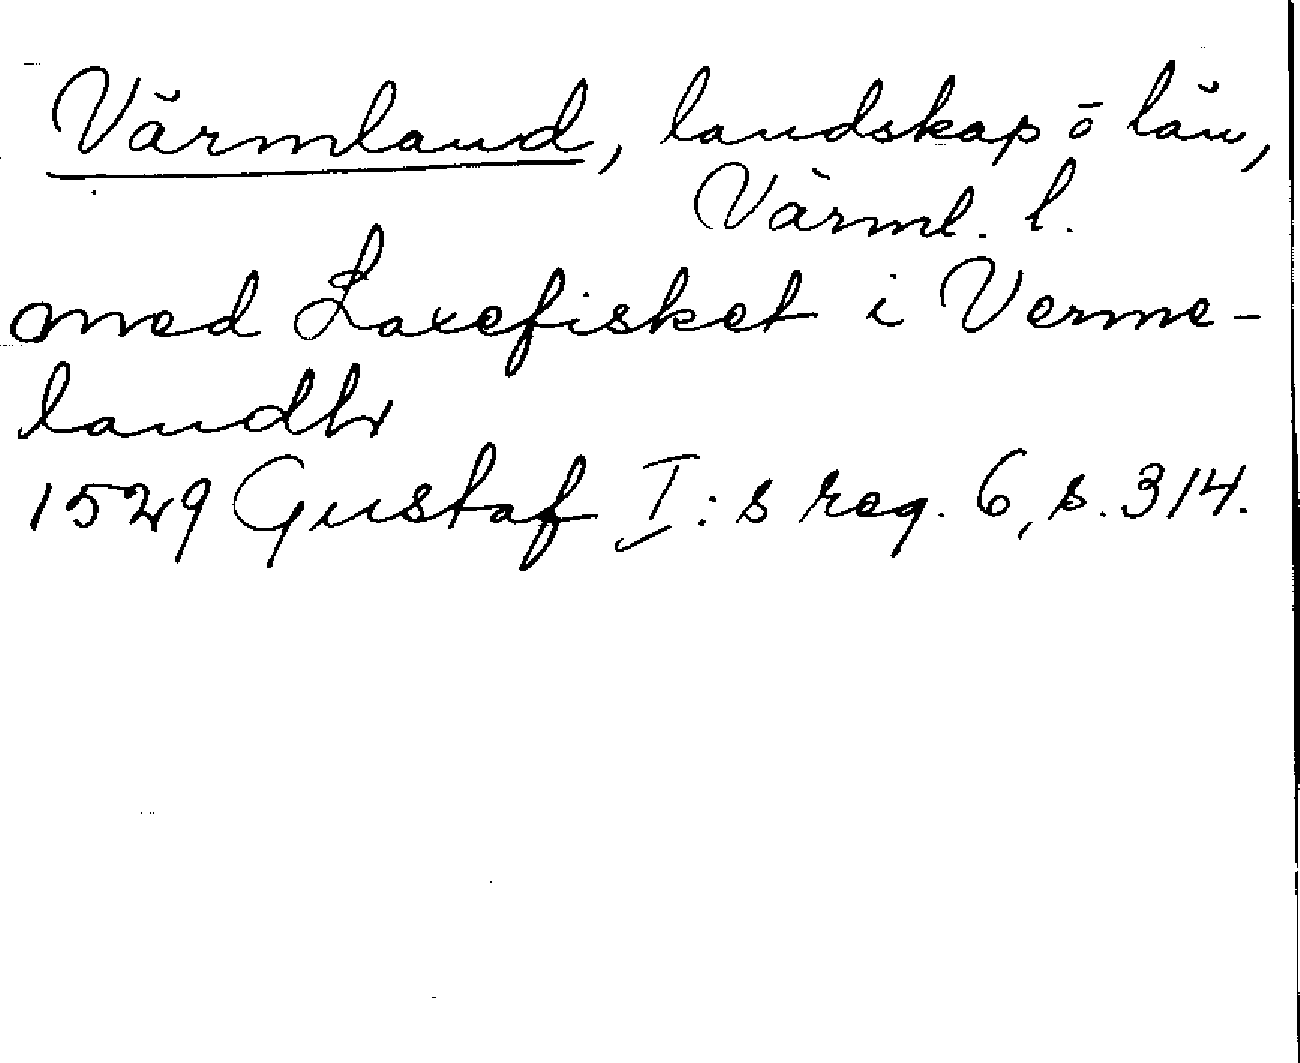 Värmland, landskap o län,
Värml. l.
med Laxefisket i Verme-
landh
1529 Gustaf I:s reg. 6, s. 314.